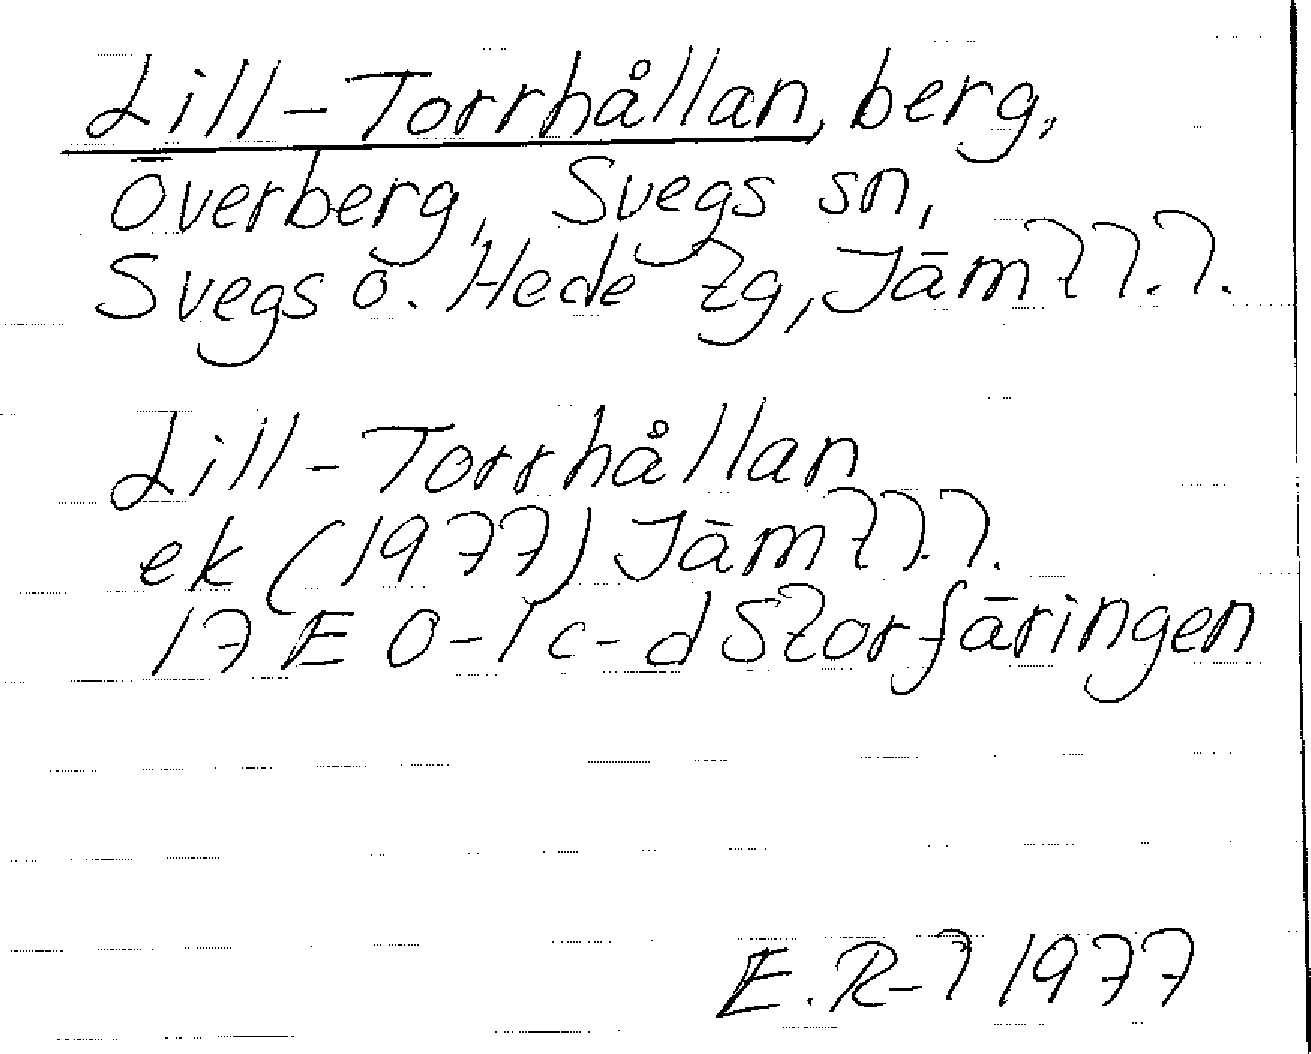 Lill-Torrhållan, berg,
Överberg, Svegs sn,
Svegs o. Hede tg, Jämtl.l.
Lill-Torrhållan
ek (1977) Jämtl.l.
17E 0-1 c-d Storfäringen
E.R-l 1977